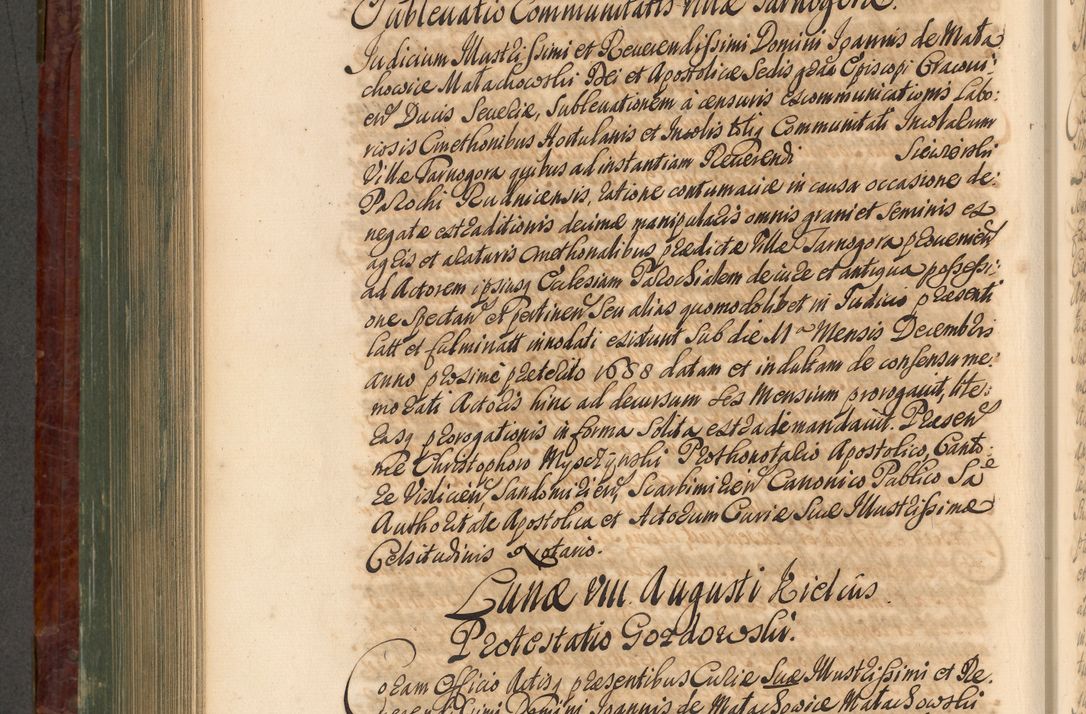 Sublevatio Communitatis Villæ Tarnogora.
Judicium Illustrissimi et Reverendissimi Domini Joannis de Mała
chowice Małachowski Dei et Apostolicæ Sedis grãa Episcopi Cracovi:
en Ducis Severiæ, Sublevationem à censuris excommunicationis Labo:
riosis Cmethonibus Hortulanis et Inqlis totiq Communitati Incolarum
Villæ Tarnogora quibus ad instantiam Reverendi Sieurowski
Parochi Rudnicensis, ratione contumaciæ in causa occasione de:
negatæ extraditionis decimæ manipularis omnis grani et seminis ex
agris et araturis Cmethonalibus prædictæ Villæ Tarnogora provenien
ad Actorem ipsiusq Ecclesiam Parochialem de jure et antiqua possessi:
one spectan et pertinen seu alias quomodolibet in Judicio præsenti
latt et fulminatt innodati existunt sub die 11a Mensis Decembris
anno proxime præterito 1688 datam et indultam de consensu me:
morati Actoris hinc ad decursum sex Mensium prorogavit, lite:
rasq prorogationis in forma solita extrade mandavit. Præsen
me Christophoro Myszczynski Prothonotario Apostolico, Canto:
re Vislicien, Sandomirien, Scarbimirien Canonico Publico Sa
Authoritate Apostolica et Actorum Curiæ Suæ Illustrissimæ
Celsitudinis Notario.
Lunæ VIII Augusti Kielciis
Protestatio Gozdowski.
Coram Officio Actisq præsentibus Curiæ Suæ Illustrissimi et Re:
verendissimi Domini Joannis de Małachowice Małachowski